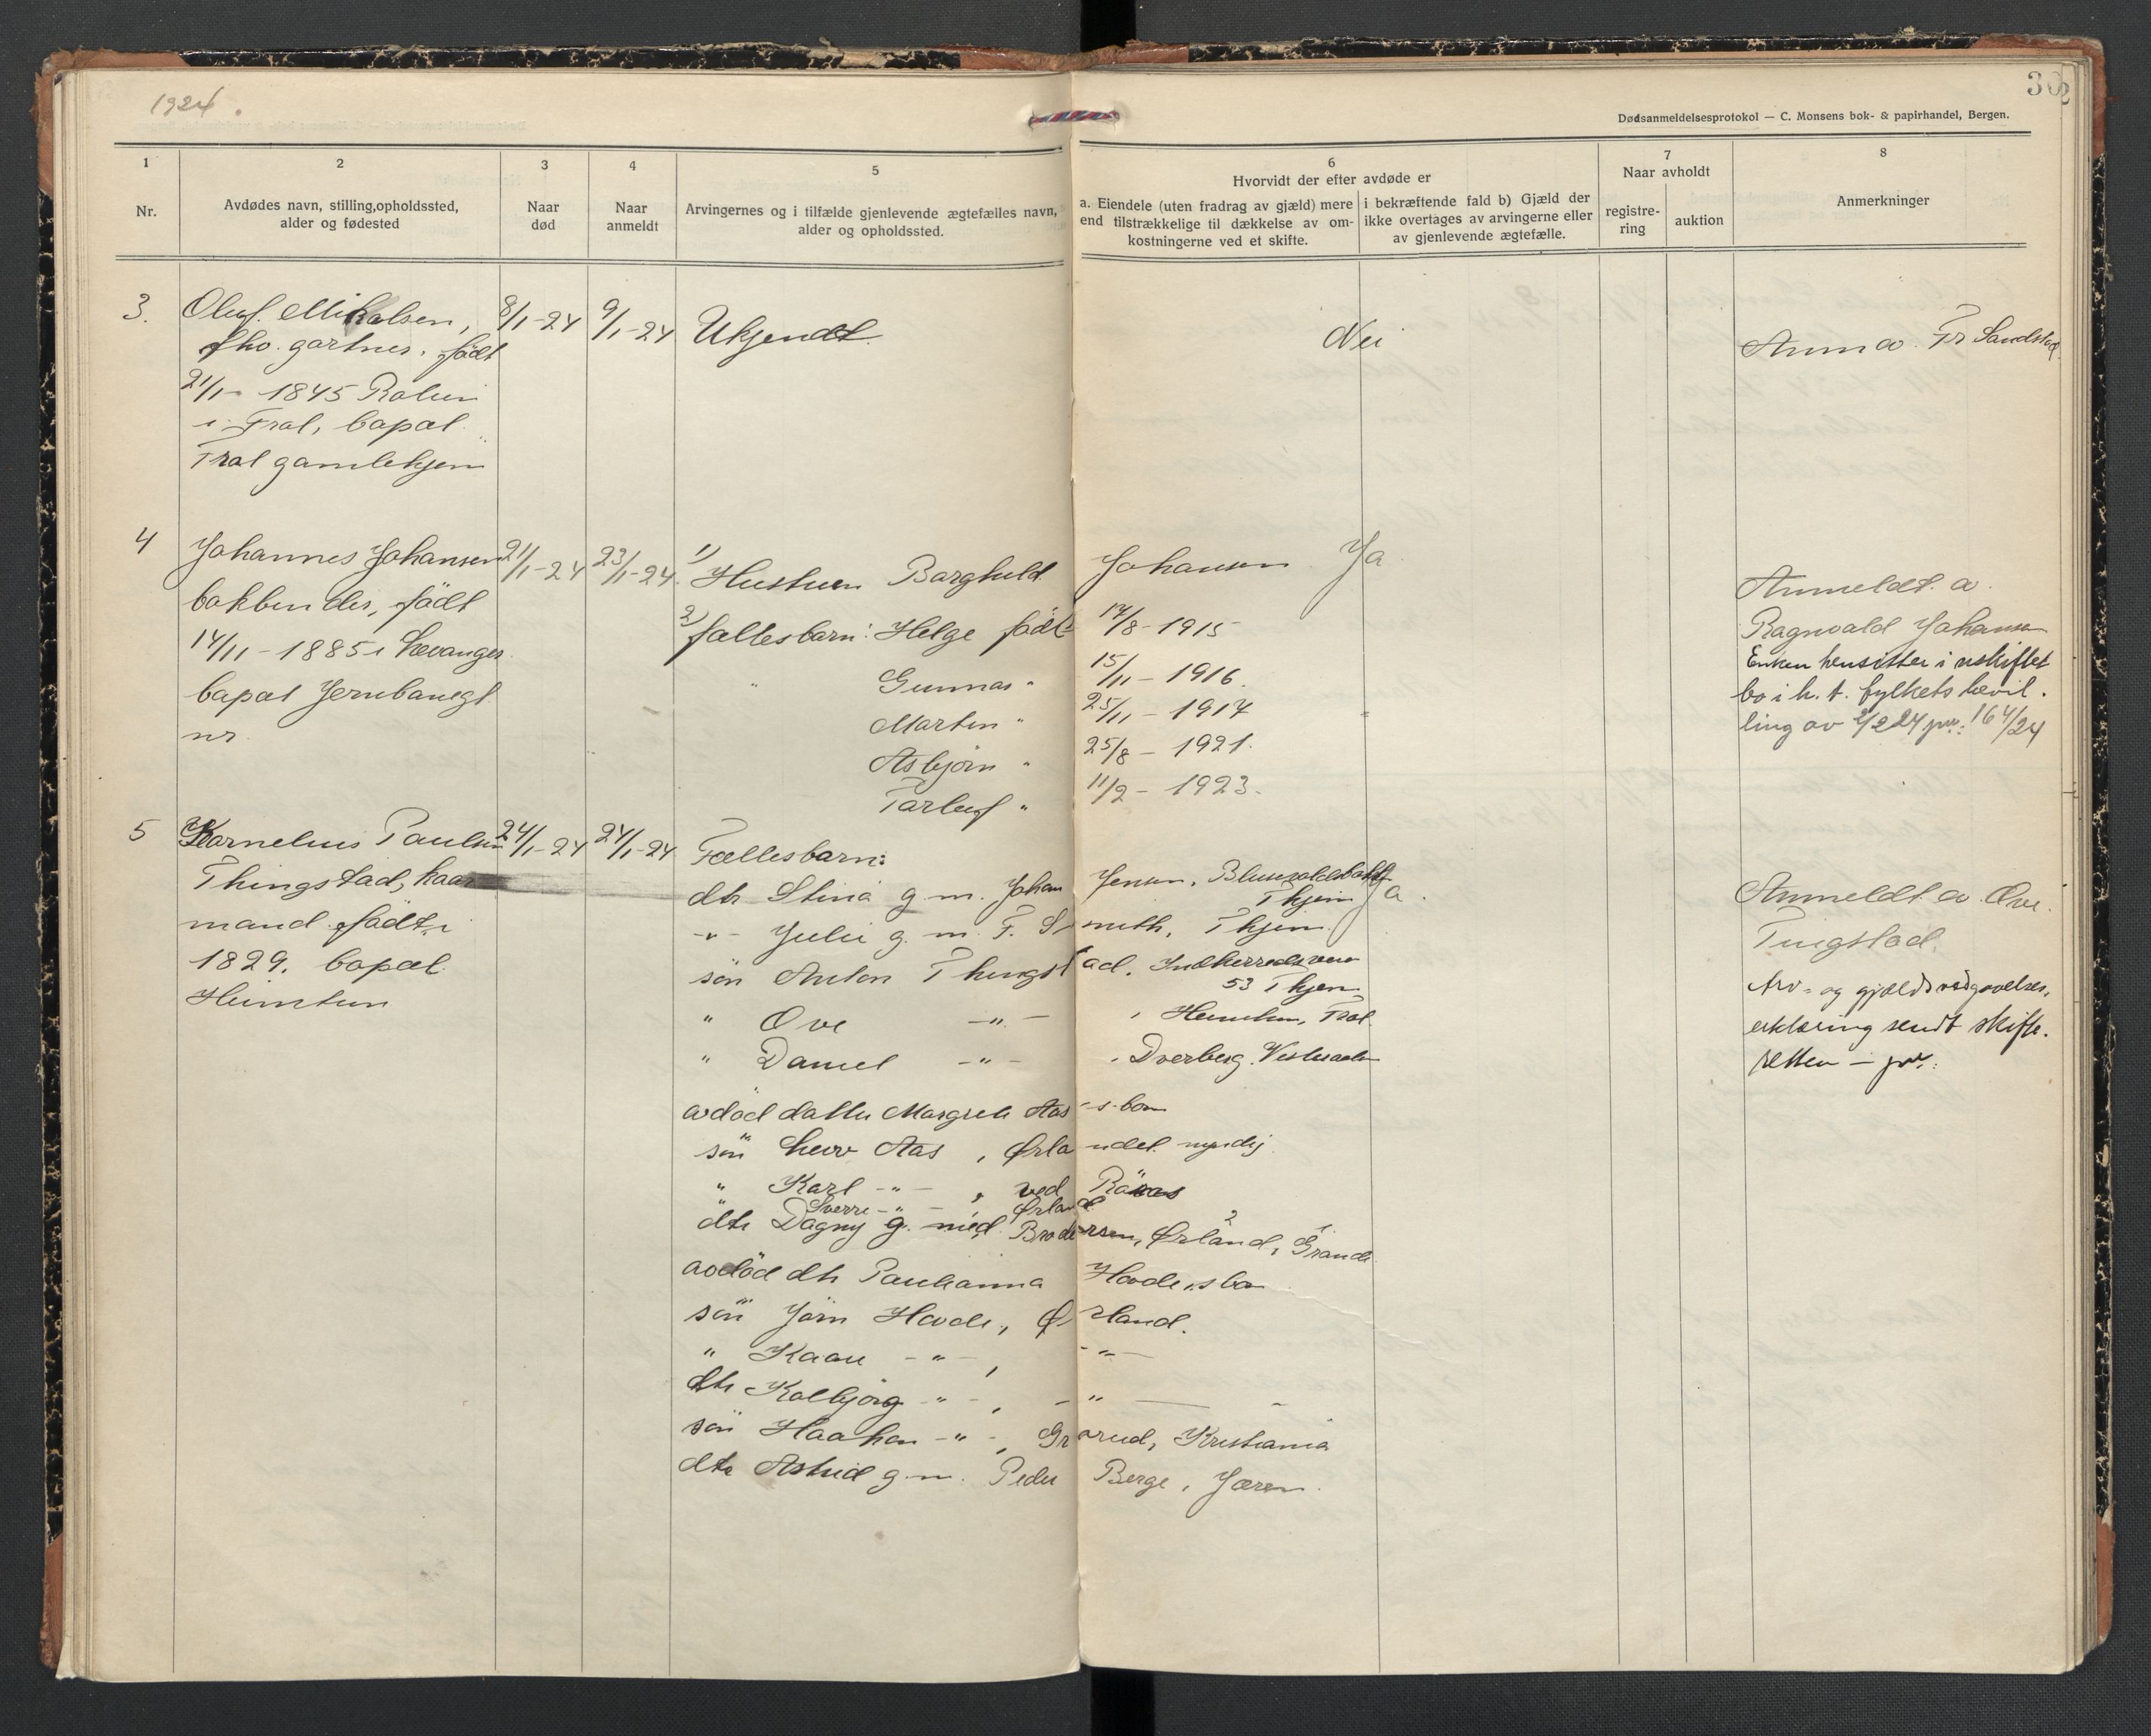 1924.
30
2
Dødsanmeldelsesprotokol — C. Monsens bok- & papirhandel, Bergen.
1
Nr.
2
Avdødes navn, stilling, opholdssted,
alder og fødested
3
Naar
død
4
Naar
anmeldt
5
Arvingernes og i tilfælde gjenlevende ægtefælles navn,
alder og opholdssted.
6
Hvorvidt der efter avdøde er
a. Eiendele (uten fradrag av gjæld) mere
end tilstrækkelige til dækkelse av om-
kostningerne ved et skifte.
i bekræftende fald b) Gjæld der
ikke overtages av arvingerne eller
av gjenlevende ægtefælle.
7
Naar avholdt
registre-
ring
auktion
8
Anmerkninger
3. Oluf Mikalsen, 8/1-24 9/1-24 Ukjendt. Nei Anm av Fr Sandstad
fhv. gartner. født
21/1- 1845
i Frol, bopæl
Frol gamlehjem
4 Johannes Johansen 21/1-24 23/1-24. 1) Hustruen Borghild Johansen Ja
bokbinder, født 2) fællesbarn: Helge født 14/8-1915
14/11-1885 i Levanger " Gunnar " 15/11-1916.
bopæl Jernbanegt. Morten " 25/11-1917
nr. Asbjørn " 25/8-1921.
Torleif " 11/2-1923.
Anmeldt av
Ragnvald Johansen
Enken hensitter i uskiftet
bo i h. t. fylkets bevil.
ling av 2/2 24 164/24
5 Kornelius Paulsen 24/1-24 24/1-24 Fællesbarn:
Thingstad, kaar
mand født i
1829. bopæl
Heimtun
dtr Stina g. m. Johan Jensen, Thjem Ja.
-"- Julie g. m. F. Smith, Thjem.
søn Anton Thingstad, Indherredsveien
53 Thjem
" Ove -"- , Heimtun, Frol
" Daniel -"- , Dverberg, Vesteraalen
avdød datter Margrete Aas's barn
søn Aas, Ørlandet myndig
" Karl -"-, ved Röros
" Sverre -"- Ørland
dtr Dagny g. med Brodersen, Ørland, Grande
avdød dtr Paulanna Hovde's barn
søn Jörn Hovde, Ørland.
" Kaare -"-, -"-
dtr Kolbjørg -"-, -"-
søn Haakon -"-, Grorud, Kristiania
dtr Astrid g. m. Peder Berge, Jæren.
Anmeldt av Ove
Tingstad.
Arv- og gjældsvedgaaelses.
erklæring sendt skifte.
retten —